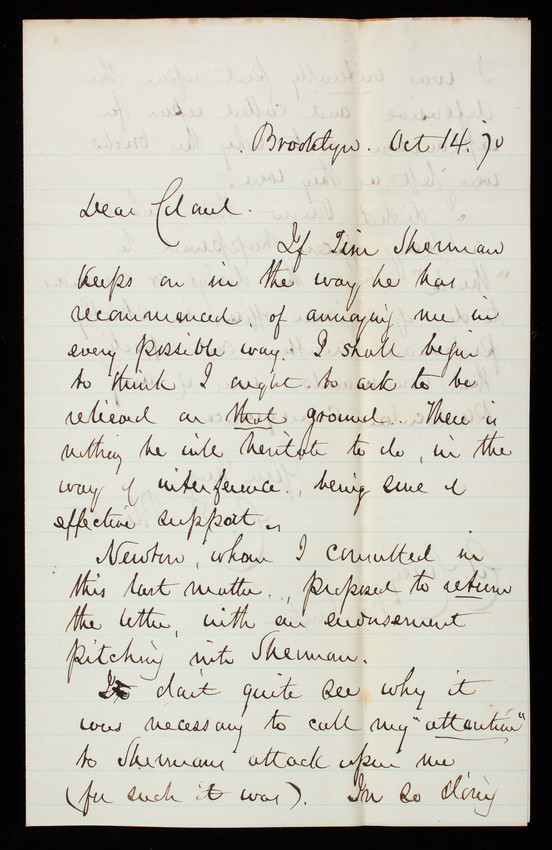 Brooklyn. Oct 14. 70
Dear Colonel.
If Tim Sherman
keeps on in the way he has
recommenced, of annoying me in
every possible way. I shall begin
to think I ought to ask to be
relieved on that ground. There is
nothing he will hesitate to do, in the
way of interference, being sure of
effective support.
Newton, whom I consulted in
this last matter, proposed to return
the letter, with an endorsement
pitching into Sherman.
I don't quite see why it
was necessary to call my "attention"
to Shermans attack upon me
(for such it was). In so doing